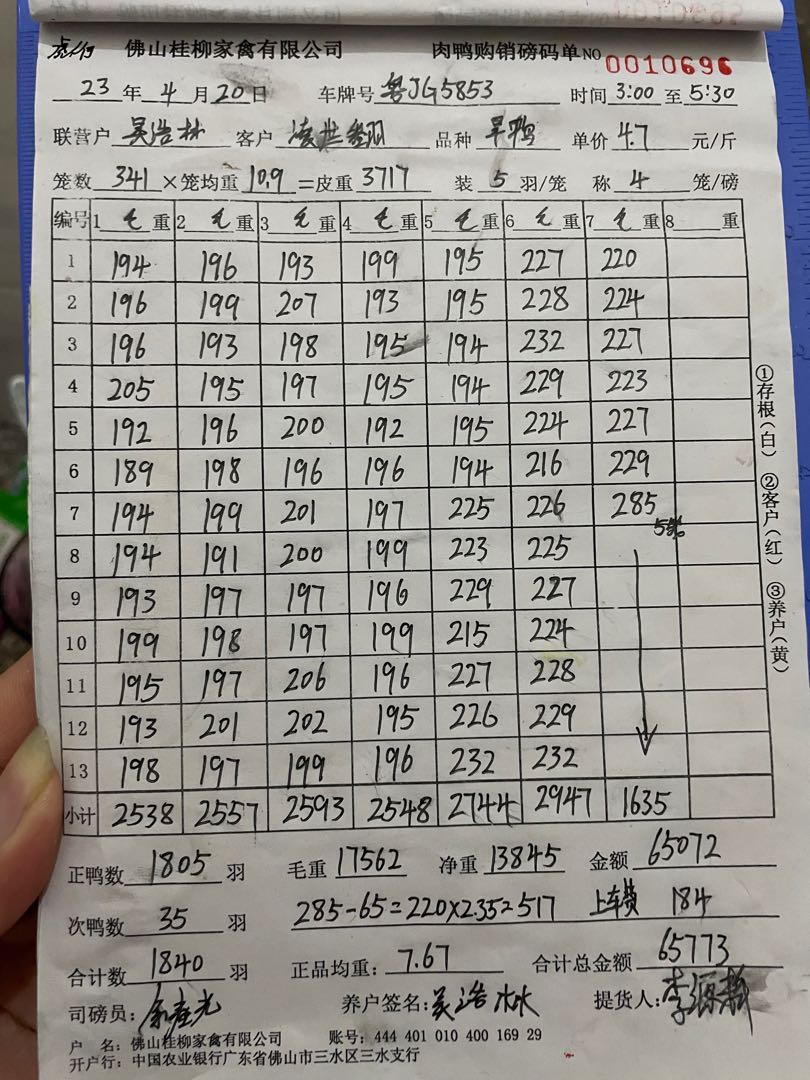 佛山桂柳家禽有限公司 肉鸭购销磅码单 NO 0010696
23 年 4 月 20 日 车牌号 粤JG5853 时间 3:00 至 5:30
联营户 吴浩林 客户 凌世翻 品种 旱鸭 单价 4.7 元/斤
笼数 341 ×笼均重 10.9 =皮重 3717 装 5 羽/笼 称 4 笼/磅
编号 1 毛 重 2 毛 重 3 毛 重 4 毛 重 5 毛 重 6 毛 重 7 毛 重 8 重
1 194 196 193 199 195 227 220
2 196 199 207 193 195 228 224
3 196 193 198 195 194 232 227
4 205 195 197 195 194 229 223
5 192 196 200 192 195 224 227
6 189 198 196 196 194 216 229
7 194 199 201 197 225 226 285
8 194 191 200 199 223 225
9 193 197 197 196 229 227
10 199 198 197 199 215 224
11 195 197 206 196 227 228
12 193 201 202 195 226 229
13 198 197 199 196 232 232
小计 2538 2557 2593 2548 2744 2947 1635
正鸭数 1805 羽 毛重 17562 净重 13845 金额 65072
次鸭数 35 羽 285-65=220×2.35=517 上车费 184
合计数 1840 羽 正品均重: 7.67 合计总金额 65773
司磅员: 养户签名: 吴浩林 提货人:
户 名: 佛山桂柳家禽有限公司 账号: 444 401 010 400 169 29
开户行: 中国农业银行广东省佛山市三水区三水支行
①存根(白) ②客户(红) ③养户(黄)